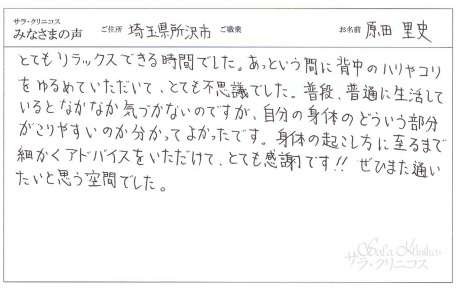 サラ・クリニコス
みなさまの声 ご住所 埼玉県所沢市 ご職業 お名前 原田 里史
とてもリラックスできる時間でした。あっという間に背中のハリやコリ
をゆるめていただいて、とても不思議でした。普段、普通に生活して
いるとなかなか気づかないのですが、自分の身体のどういう部分
がこりやすいのか分かってよかったです。身体の起こし方に至るまで
細かくアドバイスをいただけて、とても感謝です!! ぜひまた通い
たいと思う空間でした。
Sala Klinikos
サラ・クリニコス